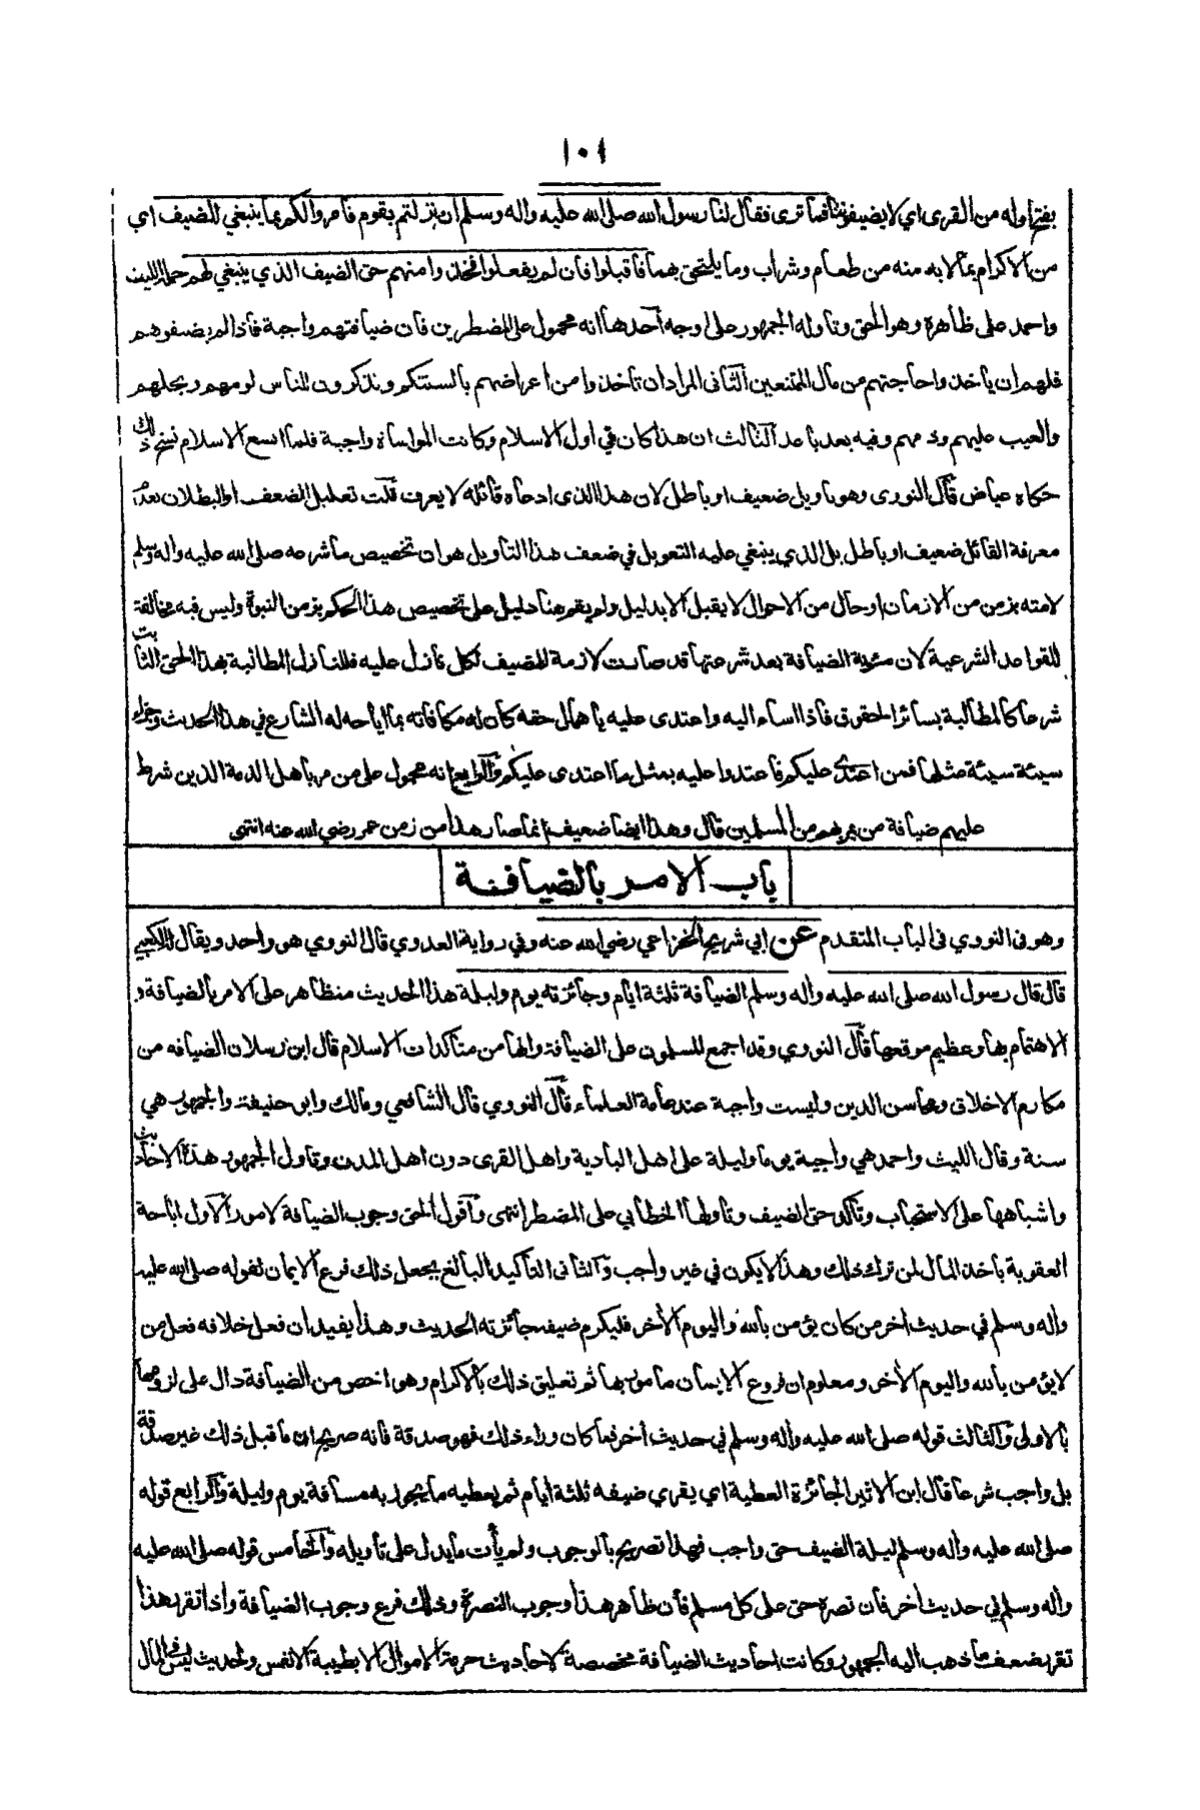 ١٠١
بفتح اوله من القرى اي لا يضيفوننا فما ترى فقال لنا رسول الله صلى الله عليه واله وسلم ان نزلتم بقوم فأمروا لكم بما ينبغي للضيف اي
من الاكرام بما لا بد منه من طعام وشراب وما يلتحق بهما فاقبلوا فان لم يفعلوا فخذوا منهم حق الضيف الذي ينبغي لهم حمله الليث
واحمد على ظاهره وهو الحق وتاوله الجمهور على اوجه احدها انه محمول على المضطرين فان ضيافتهم واجبة فاذا لم يضيفوهم
فلهم ان يأخذوا حاجتهم من مال الممتنعين الثانى المراد ان تأخذوا من اعراضهم بألسنتكم وتذكرون للناس لومهم وبخلهم
والعيب عليهم وذمهم وفيه بعد باعد الثالث ان هذا كان في اول الاسلام وكانت المواساة واجبة فلما اتسع الاسلام نسخ ذلك
حكاه عياض قال النووى وهو تاويل ضعيف او باطل لان هذا الذى ادعاه قائله لا يعرف قلت تعليل الضعف او البطلان بعدم
معرفة القائل ضعيف او باطل بل الذي ينبغي عليه التعويل في ضعف هذا التاويل هو ان تخصيص ما شرعه صلى الله عليه واله وسلم
لامته بزمن من الازمان او حال من الاحوال لا يقبل الا بدليل ولم يقم هنا دليل على تخصيص هذا الحكم بزمن النبوة وليس فيه مخالفة
للقواعد الشرعية لان مئونة الضيافة بعد شرعتها قد صارت لازمة للمضيف لكل نازل عليه فللنازل المطالبة بهذا الحق الثابت
شرعا كالمطالبة بسائر الحقوق فاذا اساء اليه واعتدى عليه بإهمال حقه كان له مكافاته بما اباحه له الشارع في هذا الحديث وجزاء
سيئة سيئة مثلها فمن اعتدى عليكم فاعتدوا عليه بمثل ما اعتدى عليكم والرابع انه محمول على من مر باهل الذمة الذين شرط
عليهم ضيافة من يمر بهم من المسلمين قال وهذا ايضا ضعيف انما صار هذا من زمن عمر رضي الله عنه انتهى
باب الامر بالضيافة
وهو فى النووي فى الباب المتقدم عن ابي شريح الخزاعي رضي الله عنه وفي رواية العدوي قال النووي هو واحد ويقال له الكعبي
قال قال رسول الله صلى الله عليه واله وسلم الضيافة ثلثة ايام وجائزته يوم وليلة هذا الحديث متظاهر على الامر بالضيافة و
الاهتمام بها وعظيم موقعها قال النووي وقد اجمع المسلمون على الضيافة وانها من متأكدات الاسلام قال ابن رسلان الضيافه من
مكارم الاخلاق ومحاسن الدين وليست واجبة عند عامة العلماء قال النووي قال الشافعي ومالك وابو حنيفة والجمهور هي
سنة وقال الليث واحمد هي واجبة يوما وليلة على اهل البادية واهل القرى دون اهل المدن وتاول الجمهور هذه الاحاديث
واشباهها على الاستحباب وتأكد حق الضيف وتأولها الخطابي على المضطر انتهى وأقول الحق وجوب الضيافة لامور الاول اباحة
العقوبة بأخذ المال لمن ترك ذلك وهذا لا يكون في غير واجب والثانى التأكيد البالغ بجعل ذلك فرع الايمان لقوله صلى الله عليه
واله وسلم في حديث اخر من كان يؤمن بالله واليوم الأخر فليكرم ضيفه جائزته الحديث وهذا يفيد ان فعل خلافه فعل من
لا يؤمن بالله واليوم الأخر ومعلوم ان فروع الإيمان مأمور بها ثم تعليق ذلك بالاكرام وهو اخص من الضيافة دال على لزومها
بالاولى والثالث قوله صلى الله عليه واله وسلم في حديث أخر فما كان وراء ذلك فهو صدقة فانه صريح ان ما قبل ذلك غير صدقة
بل واجب شرعا قال ابن الاثير الجائزة العطية اي يقري ضيفه ثلثة ايام ثم يعطيه ما يجوز به مسافة يوم وليلة والرابع قوله
صلى الله عليه واله وسلم ليلة الضيف حق واجب فهذا تصريح بالوجوب ولم يأت ما يدل على تأويله والخامس قوله صلى الله عليه
واله وسلم في حديث أخر فان نصره حق على كل مسلم فان ظاهر هذا وجوب النصرة وذلك فرع وجوب الضيافة واذا تقرر هذا
تقرر ضعف ما ذهب اليه الجمهور وكانت احاديث الضيافة مخصصة لاحاديث حرمة الاموال الا بطيبة الانفس ولحديث ليس في المال